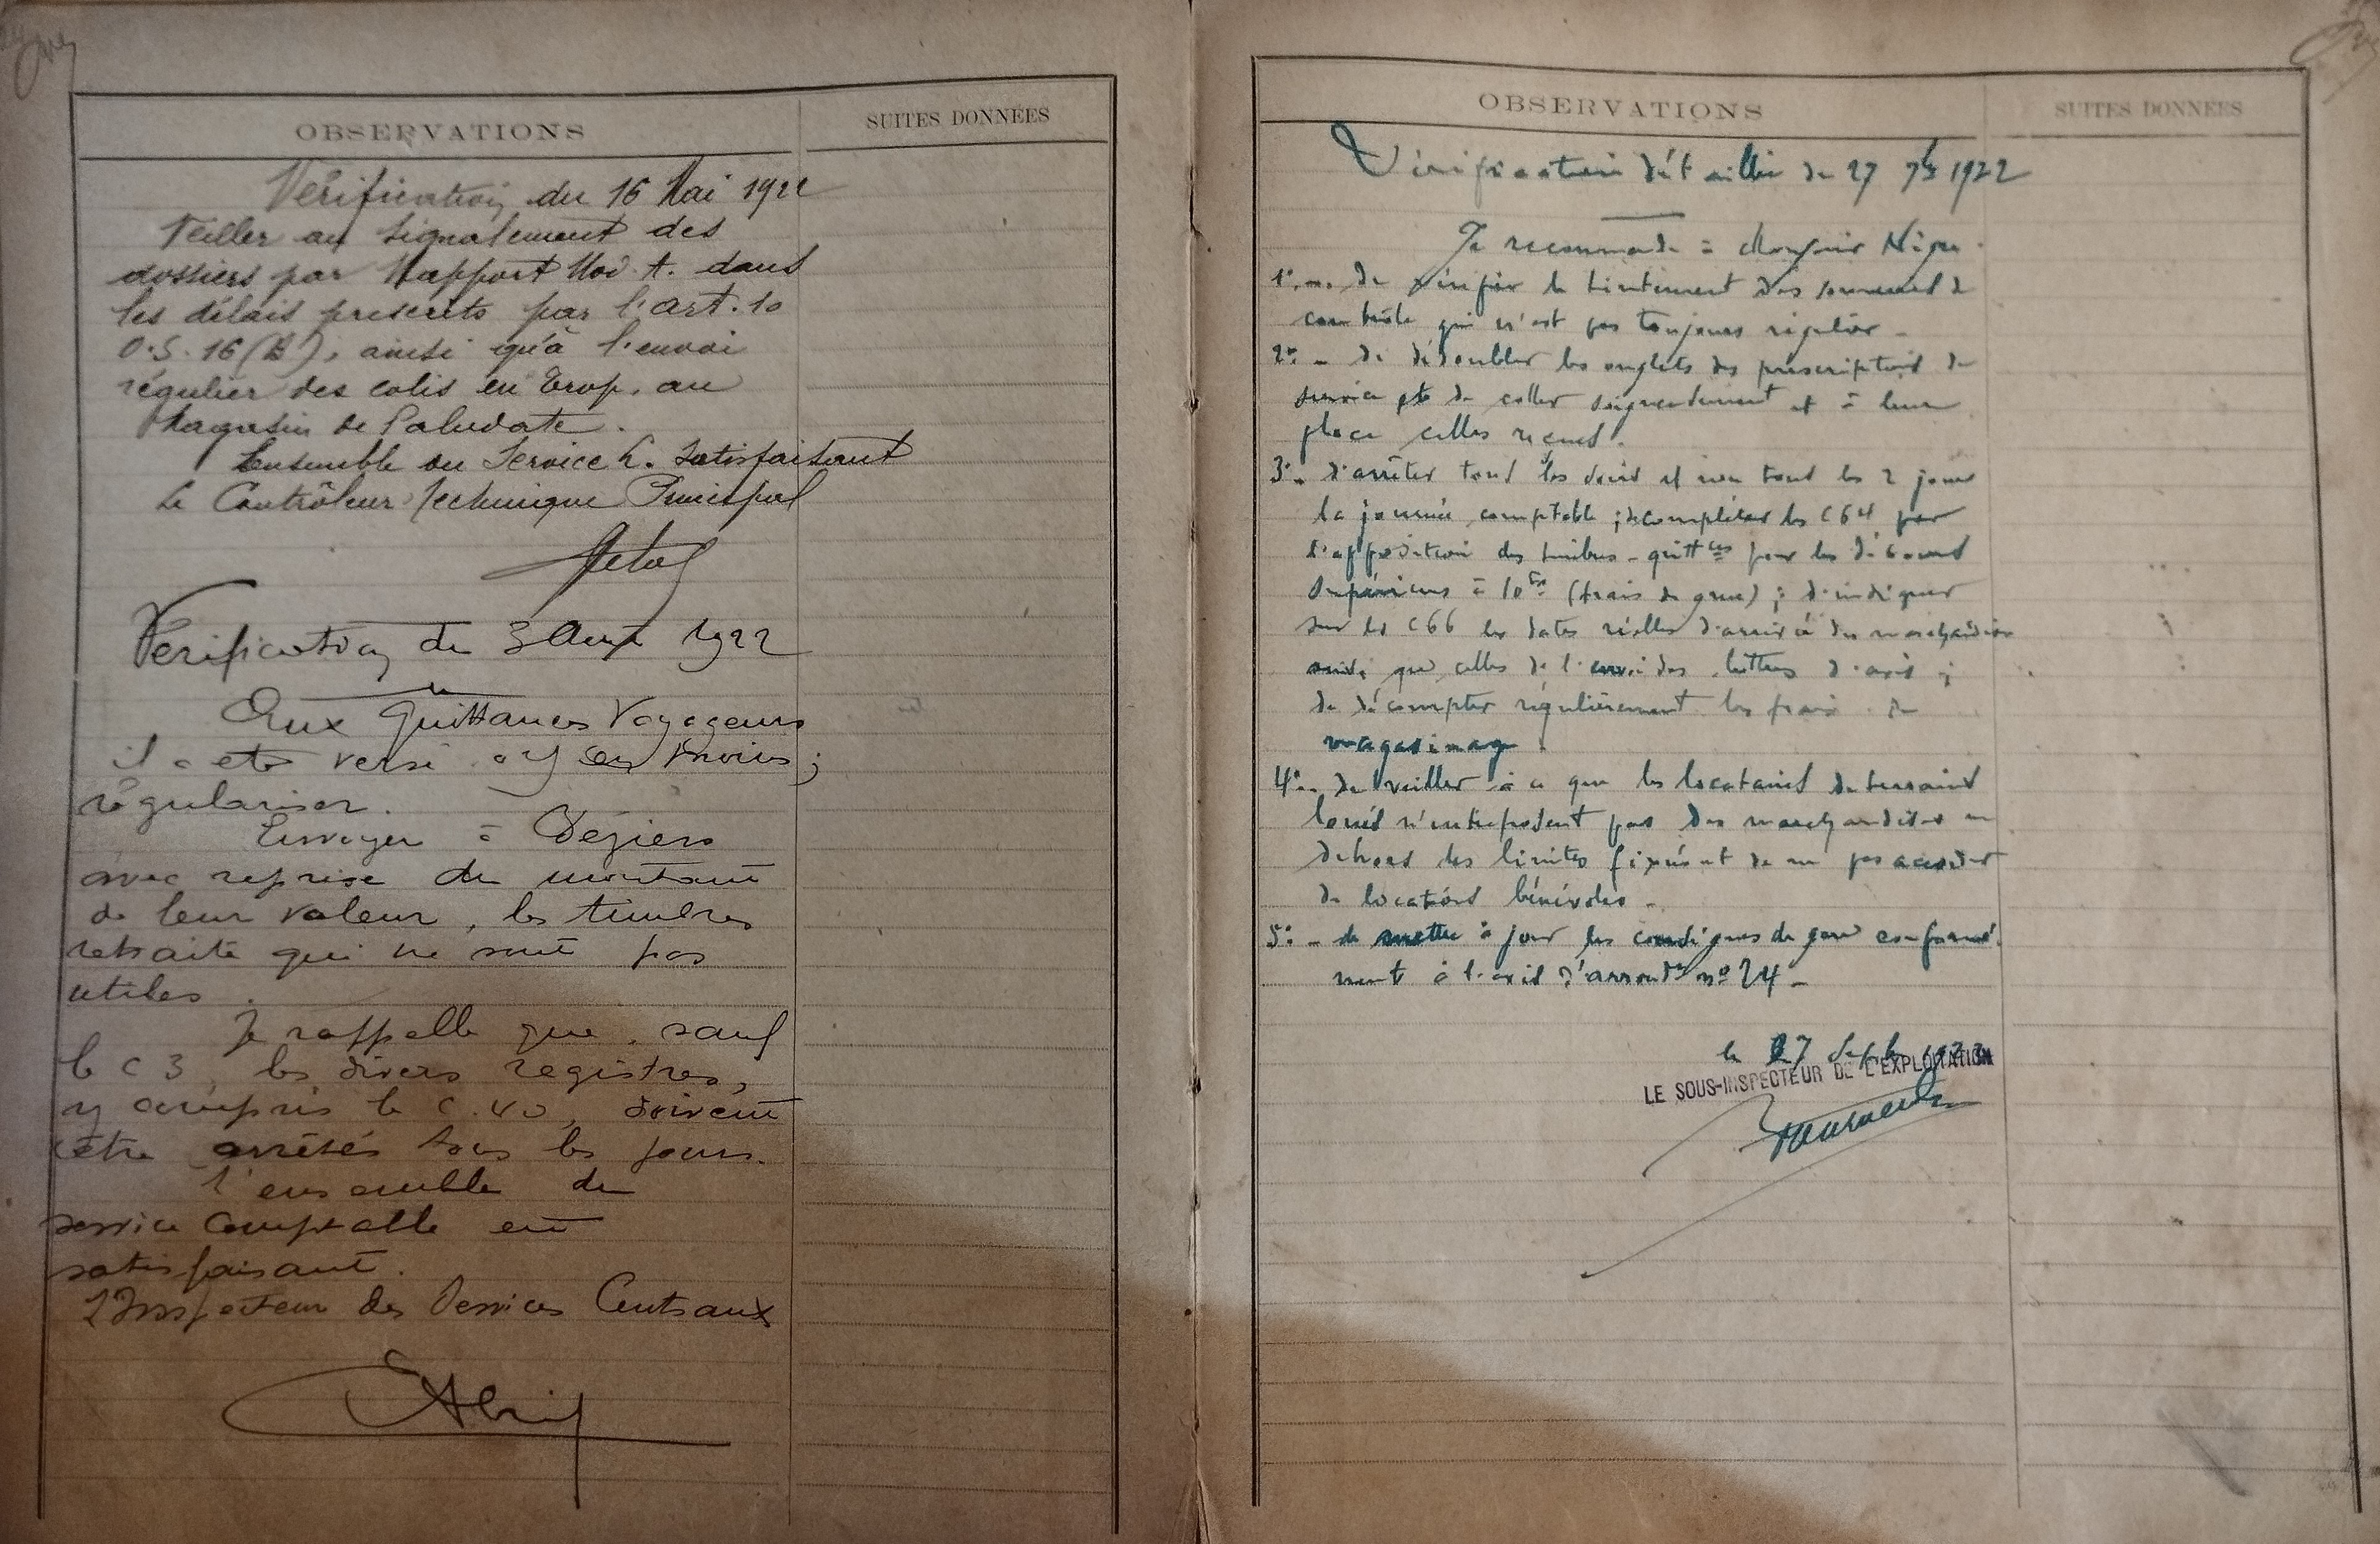 OBSERVATIONS
SUITES DONNÉES
Vérification du 16 Mai 1922
Veiller au signalement des
dossiers par Rapport Mod. A. dans
les délais prescrits par l'art. 10
O.S. 16 (B), ainsi qu'à l'envoi
régulier des colis en Trop. au
Magasin de Paludate.
Ensemble du Service L. Satisfaisant
Le Contrôleur Technique Principal
Vérification du 3 Août 1922
Aux Quittances Voyageurs
il a été versé en moins ;
régulariser.
Envoyer à Béziers
avec reprise du montant
de leur valeur, les timbres
retraite qui ne sont pas
utiles.
Je rappelle que, sauf
le C 3, les divers registres,
y compris le C. 40, doivent
être arrêtés tous les jours.
L'ensemble du
service Comptable est
satisfaisant.
L'Inspecteur des Services Centraux
OBSERVATIONS
SUITES DONNÉES
Vérification détaillée du 27 7bre 1922
Je recommande à Monsieur Nègre
1°. - de vérifier le tintement des sonneries de
contrôle qui n'est pas toujours régulier -
2°. - de dédoubler les onglets des prescriptions de
service et de coller soigneusement et à leur
place celles reçues.
3°. - d'arrêter tous les soirs et non tous les 2 jours
la journée comptable ; de compléter les C 64 par
l'apposition des timbres-quittces pour les débours
supérieurs à 10 frs (frais de grue) ; d'indiquer
sur les C 66 les dates réelles d'arrivée des marchandises
ainsi que celles de l'envoi des lettres d'avis ;
de décompter régulièrement les frais de
magasinage.
4°. - de veiller à ce que les locataires de terrains
loués n'entreposent pas des marchandises en
dehors des limites fixées et de ne pas accorder
de locations bénévoles -
5°. - de mettre à jour les consignes de gare conformé-
ment à l'avis d'arrondt n° 24 -
le 27 Septbre 1922
LE SOUS-INSPECTEUR DE L'EXPLOITATION